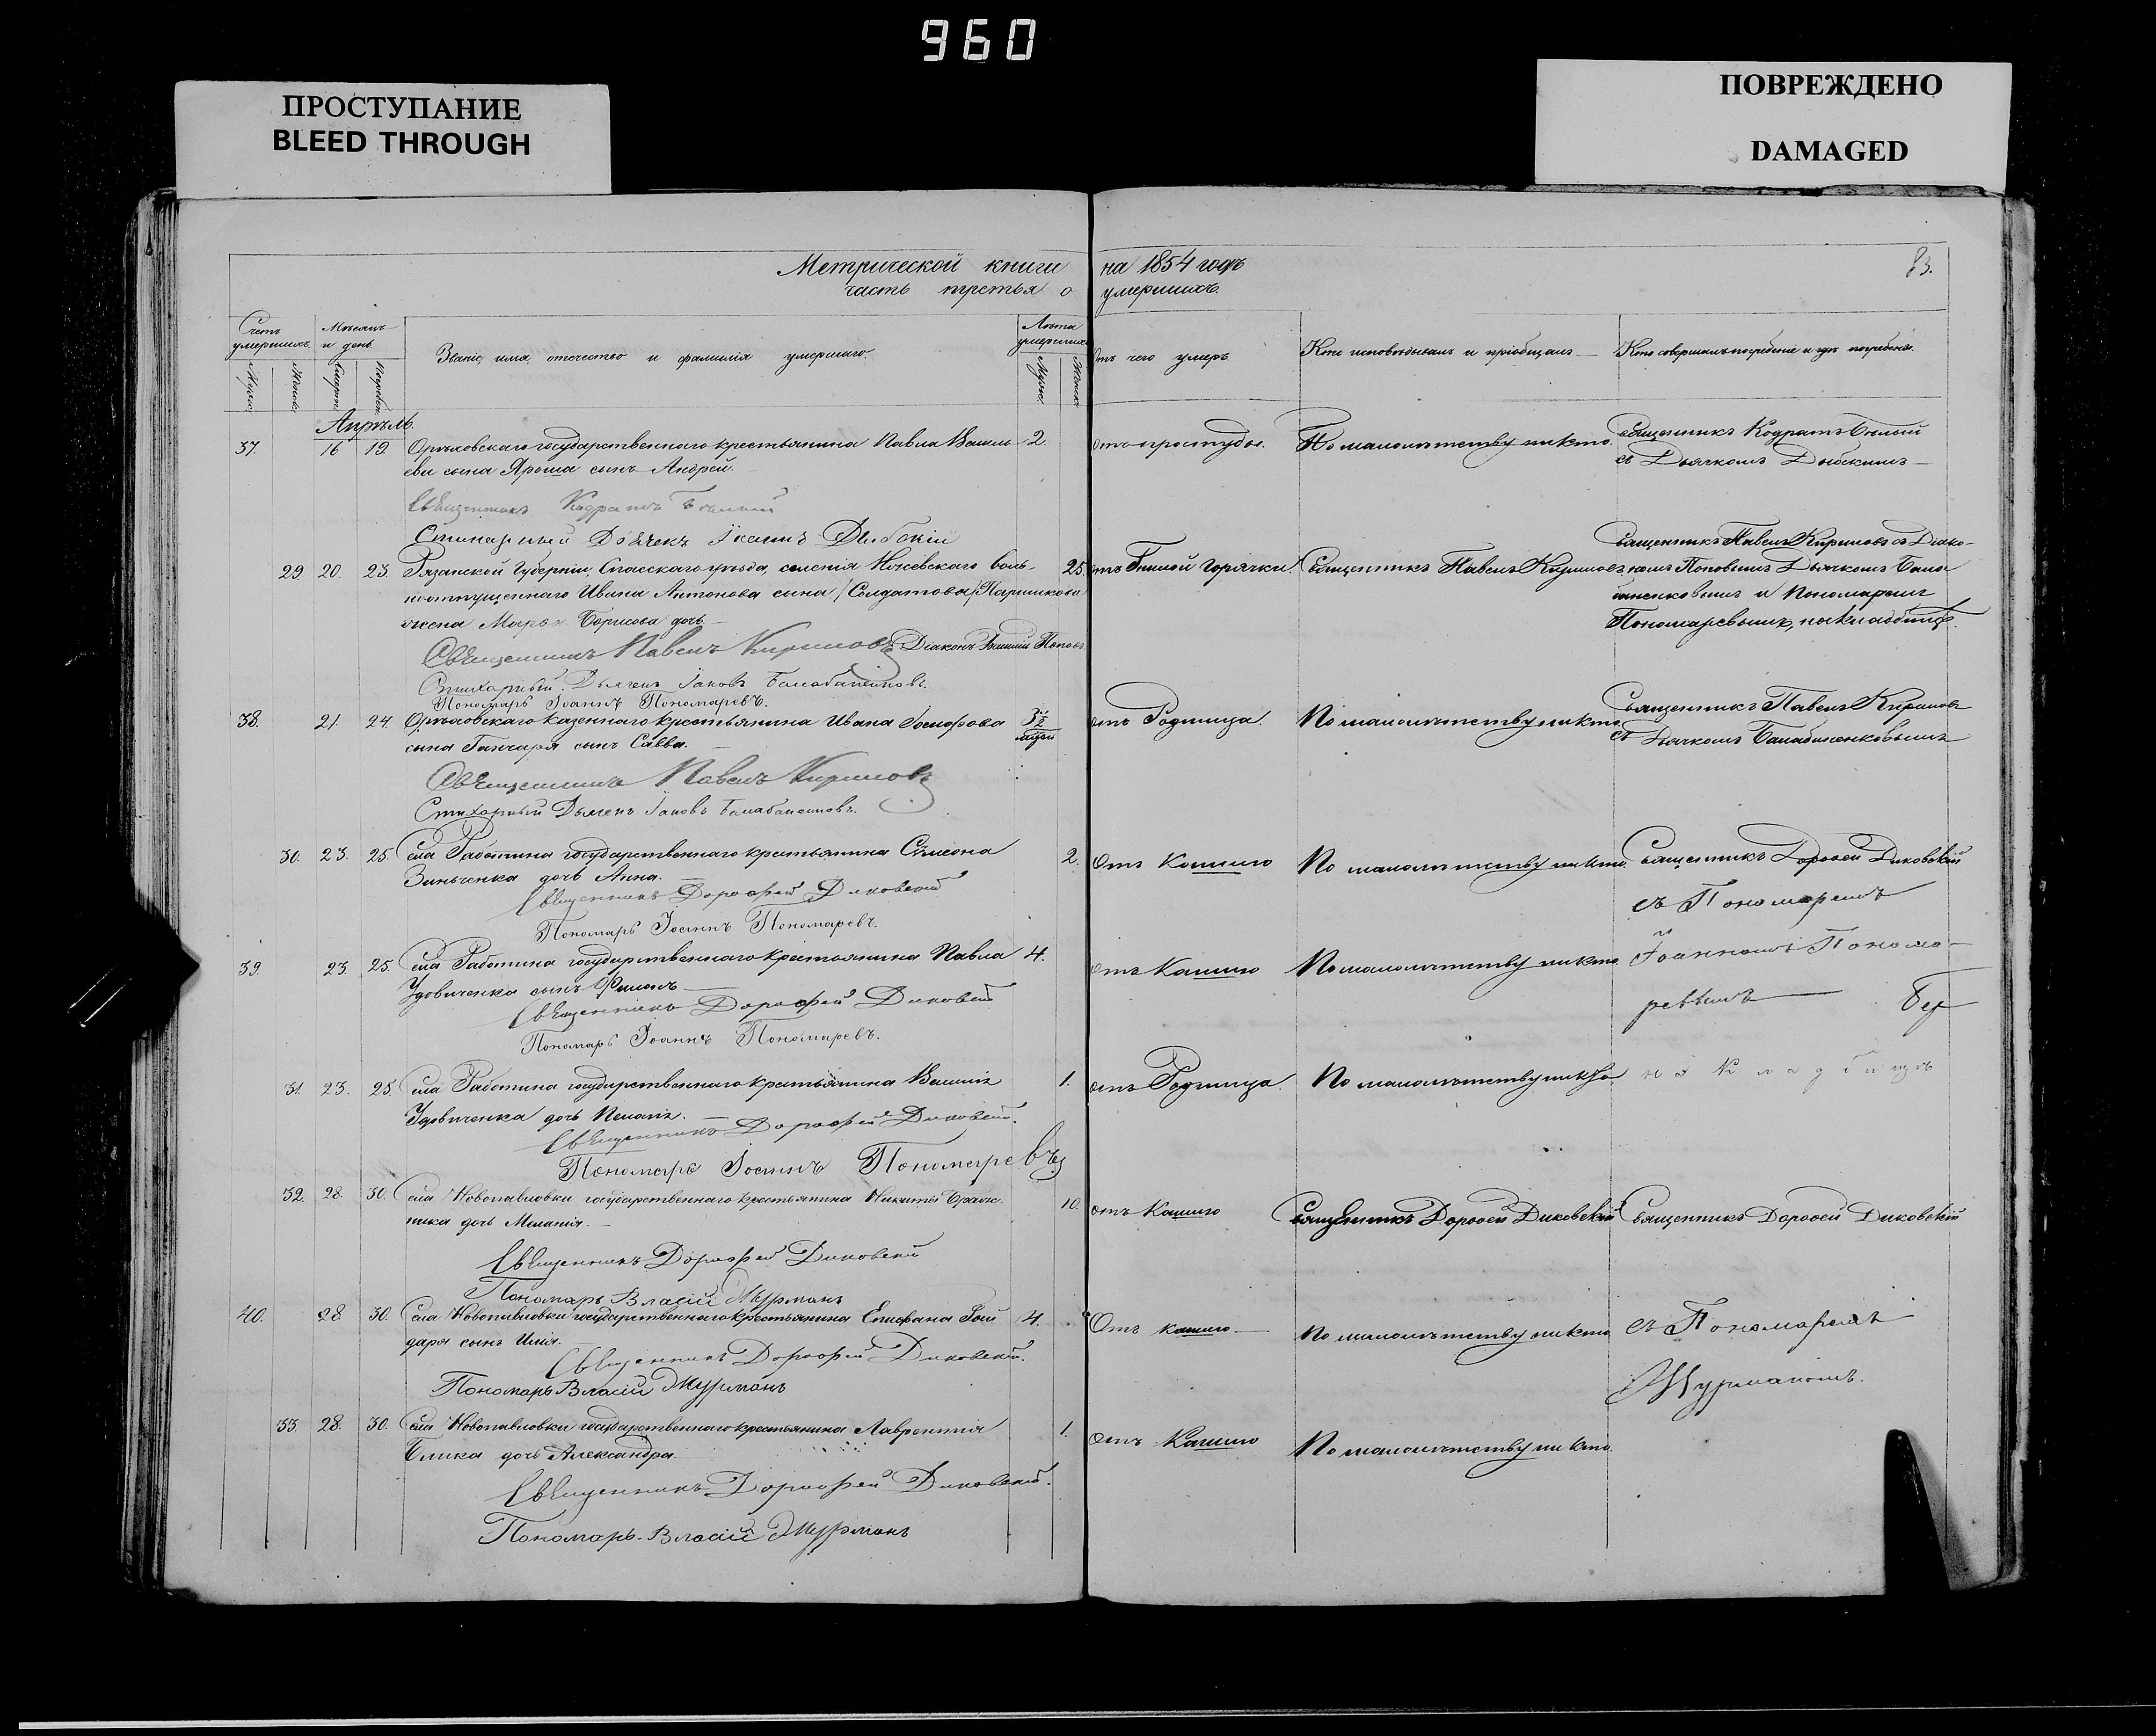 960
ПРОСТУПАНИЕ
BLEED THROUGH
ПОВРЕЖДЕНО
DAMAGED
Метрической книги на 1854 годъ
часть третья о умершихъ.
83.
Счетъ умершихъ.
Мѣсяцъ и день
Званіе, имя, отечество и фамилія умершаго.
Лѣта умершаго
Отъ чего умеръ
Кто исповѣдывалъ и пріобщалъ
Кто совершилъ погребеніе и гдѣ погребены.
Мужес. Женск. Смерт. Погребен. Мужес. Женска
Апрѣль.
37. 16 19. Орѣховскаго государственнаго крестьянина Павла Василь- 2. Отъ простуды. По малолѣтству никто. Священникъ Кодратъ Бѣлый
еви сына Яроша сынъ Андрей. съ Дьячкомъ Дибскимъ
Священникъ Кодратъ Бѣлый
Стихарный Дьячекъ Іоаннъ
29. 20. 23. Рязанской Губерніи, Спасскаго уѣзда, селенія Ижевскаго воль- 25. отъ Гнилой горячки. Священникъ Павелъ Кириловъ Священникъ Павелъ Кириловъ съ Діако-
ноотпущеннаго Ивана Антонова сына /Солдатова/ Паршикова номъ Поповымъ Дьячкомъ Бала
жена Марья Борисова дочь баненковымъ и Пономаремъ
Пономаревымъ, на кладбищѣ.
Священникъ Павелъ Кириловъ Діаконъ Василій Поповъ
Стихарный Дьячекъ Іаковъ Балабаненковъ.
Пономарь Іоаннъ Пономаревъ.
38. 21. 24. Орѣховскаго казеннаго крестьянина Ивана сына Ганчаря сынъ Савва. отъ Родимца. По малолѣтству никто. Священникъ Павелъ Кириловъ
съ Дьячкомъ Балабаненковымъ
Священникъ Павелъ Кириловъ
Стихарный Дьячекъ Іаковъ Балабаненковъ.
30. 23. 25. Села Работина государственнаго крестьянина Сѵмеона 2. Отъ Кашлю По малолѣтству никто. Священникъ Дороѳей Диковскій
Зинченка дочь Анна. съ Пономаремъ
Священникъ Дорофей Диковскій
Пономарь Іоаннъ Пономаревъ.
39. 23 25. Села Работина государственнаго крестьянина Павла 4. отъ Кашлю По малолѣтству никто. Іоанномъ Понома-
Удовиченка сынъ ревымъ
Священникъ Дорофей Диковскій
Пономарь Іоаннъ Пономаревъ.
31. 23. 25. Села Работина государственнаго крестьянина Василія 1. отъ Родимца. По малолѣтству никто. на кладбищѣ
Удовиченка дочь Пелагія.
Священникъ Дорофей Диковскій.
Пономарь Іоаннъ Пономаревъ
32. 28. 30. Села Новопавловки государственнаго крестьянина Никиты 10. отъ Кашлю Священникъ Дороѳей Диковскій Священникъ Дороѳей Диковскій
ника дочь Меланія.
Священникъ Дорофей Диковскій
Пономарь Власій Мурманъ
40. 28. 30. Села Новопавловки государственнаго крестьянина Епифана Гон 4. Отъ кашлю По малолѣтству никто съ Пономаремъ
даря сынъ Илія. Мурманомъ.
Священникъ Дорофей Диковскій.
Пономарь Власій Мурманъ
33. 28. 30. Села Новопавловки государственнаго крестьянина Лаврентія 1. Отъ Кашлю По малолѣтству никто.
Блика дочь Александра.
Священникъ Дорофей Диковскій.
Пономарь Власій Мурманъ